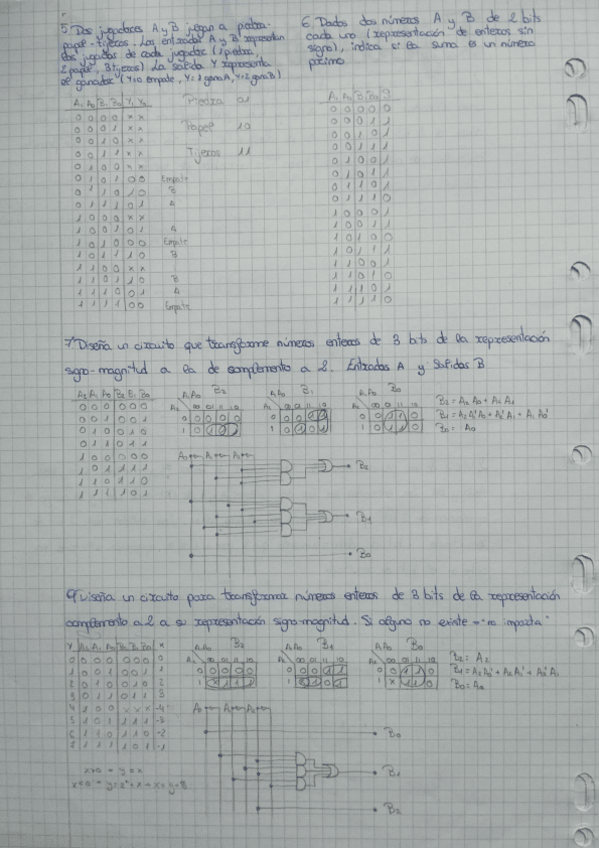 5. Dos jugadores A y B juegan a piedra-
papel-tijeras. Las entradas A y B representan
las jugadas de cada jugador (1 piedra,
2 papel, 3 tijeras). La salida Y representa
el ganador (Y=0 empate, Y=1 gana A, Y=2 gana B)
A₁ A₀ B₁ B₀ Y₁ Y₀
0 0 0 0 x x
0 0 0 1 x x
0 0 1 0 x x
0 0 1 1 x x
0 1 0 0 x x
0 1 0 1 0 0 Empate
0 1 1 0 1 0 B
0 1 1 1 0 1 A
1 0 0 0 x x
1 0 0 1 0 1 A
1 0 1 0 0 0 Empate
1 0 1 1 1 0 B
1 1 0 0 x x
1 1 0 1 1 0 B
1 1 1 0 0 1 A
1 1 1 1 0 0 Empate
Piedra 01
Papel 10
Tijeras 11
6. Dados dos números A y B de 2 bits
cada uno (representación de enteros sin
signo), indica si la suma es un número
primo
0 0 0 0 0
0 0 0 1 0
0 0 1 0 1
0 0 1 1 1
7. Diseña un circuito que transforme números enteros de 3 bits de la representación
signo-magnitud a la de complemento a 2. Entradas A y Salidas B
A₂ A₁ A₀ B₂ B₁ B₀
0 0 0 0 0 0
0 0 1 0 0 1
0 1 0 0 1 0
0 1 1 0 1 1
1 0 0 0 0 0
1 0 1 1 1 1
1 1 0 1 1 0
1 1 1 1 0 1
B₂ B₁ B₀
B₂ = A₂ A₀ + A₂ A₁
B₁ = A₂ A₁' A₀ + A₂' A₁ + A₁ A₀'
B₀ = A₀
B₂
B₁
B₀
Diseña un circuito para transformar números enteros de 3 bits de la representación
complemento a 2 a su representación signo-magnitud. Si alguno no existe → "no importa"
Y A₂ A₁ A₀ B₂ B₁ B₀ x
0 0 0 0 0 0 0 0
1 0 0 1 0 0 1 1
2 0 1 0 0 1 0 2
3 0 1 1 0 1 1 3
4 1 0 0 x x x -4
5 1 0 1 1 1 1 -3
6 1 1 0 1 1 0 -2
7 1 1 1 1 0 1 -1
B₂ B₁ B₀
B₂ = A₂
B₁ = A₂ A₁' + A₂ A₀' + A₂' A₁
B₀ = A₀
B₀
B₁
B₂